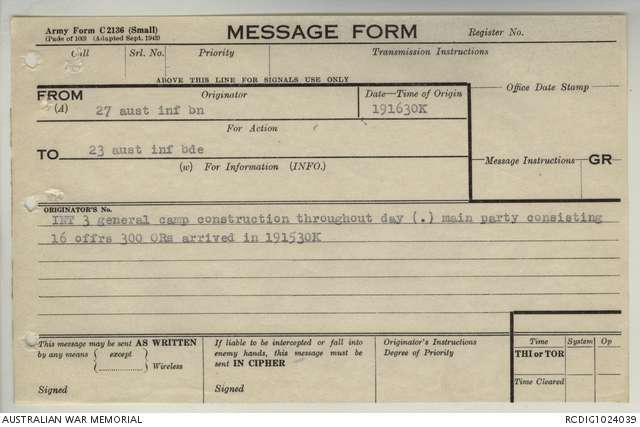 Army Form C2136 (Small)
(Pads of 100) (Adapted Sept. 1943)
MESSAGE FORM
Register No.
Call Srl. No. Priority Transmission Instructions
ABOVE THIS LINE FOR SIGNALS USE ONLY
FROM Originator Date—Time of Origin
(A) 27 aust inf bn 191630K
Office Date Stamp
For Action
TO 23 aust inf bde
(W) For Information (INFO.)
Message Instructions GR
ORIGINATOR'S No.
INT 3 general camp construction throughout day (.) main party consisting
16 offrs 300 ORs arrived in 191530K
This message may be sent AS WRITTEN
by any means { except }
{ ............ } Wireless
Signed
If liable to be intercepted or fall into
enemy hands, this message must be
sent IN CIPHER
Signed
Originator's Instructions
Degree of Priority
Time System Op
THI or TOR
Time Cleared
AUSTRALIAN WAR MEMORIAL RCDIG1024039